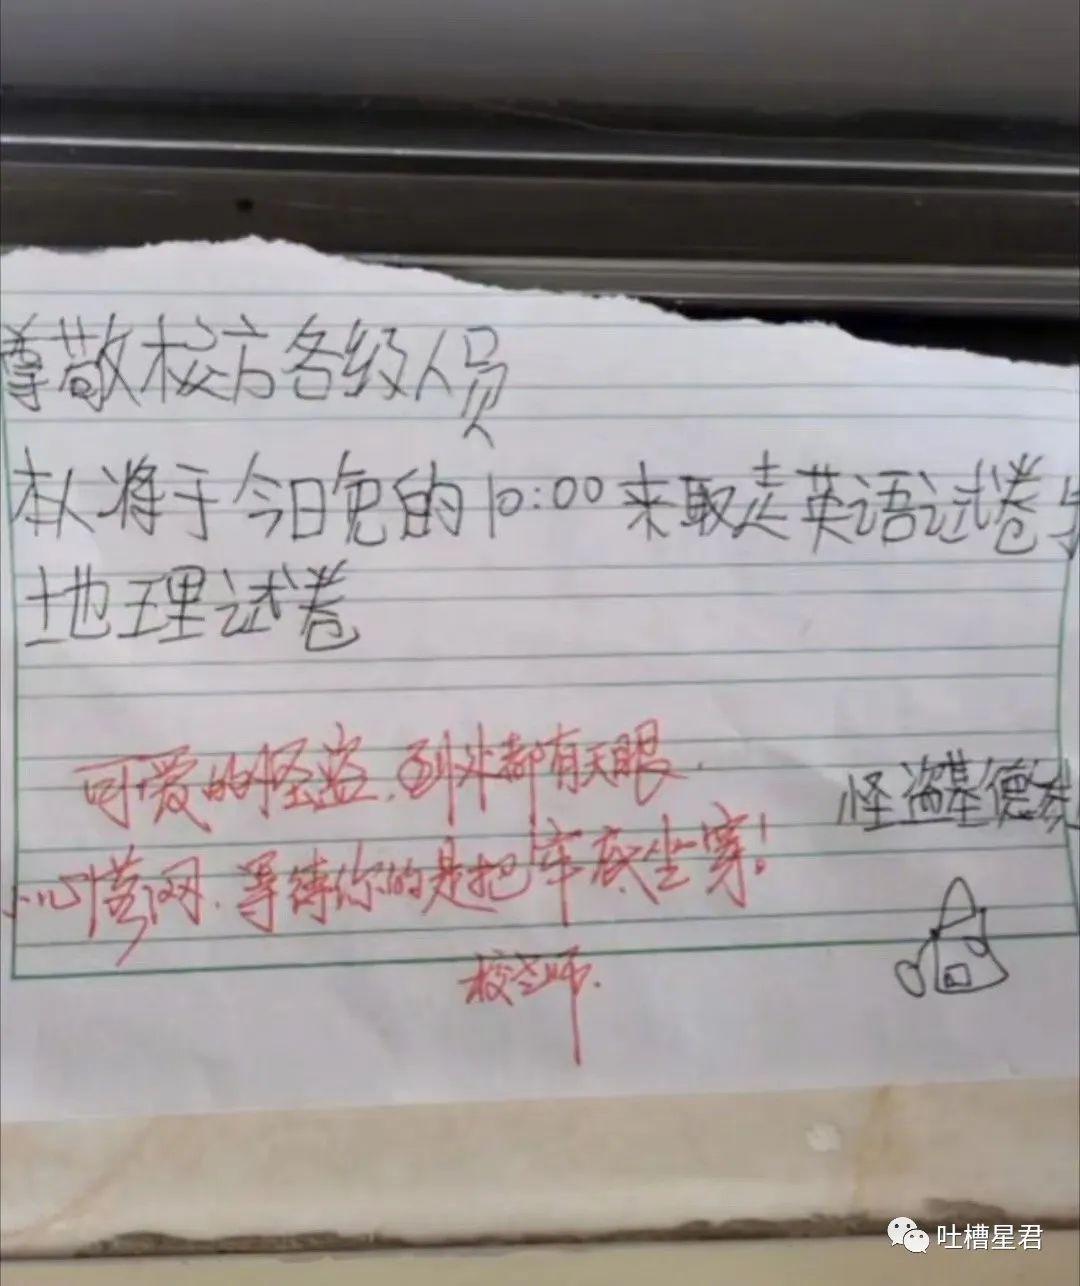 尊敬校方各级人员
本人将于今日晚的10:00来取走英语试卷与
地理试卷
可爱的怪盗,到处都有天眼.
小心落网.等待你的是把牢底坐穿!
怪盗基德
校老师.
吐槽星君